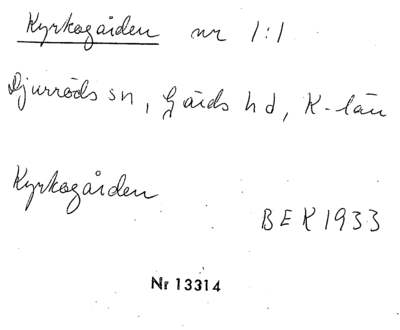 Kyrkogården nr 1:1
Djurröds sn, Gärds hd, K-län
Kyrkogården
BEK 1933
Nr 13314